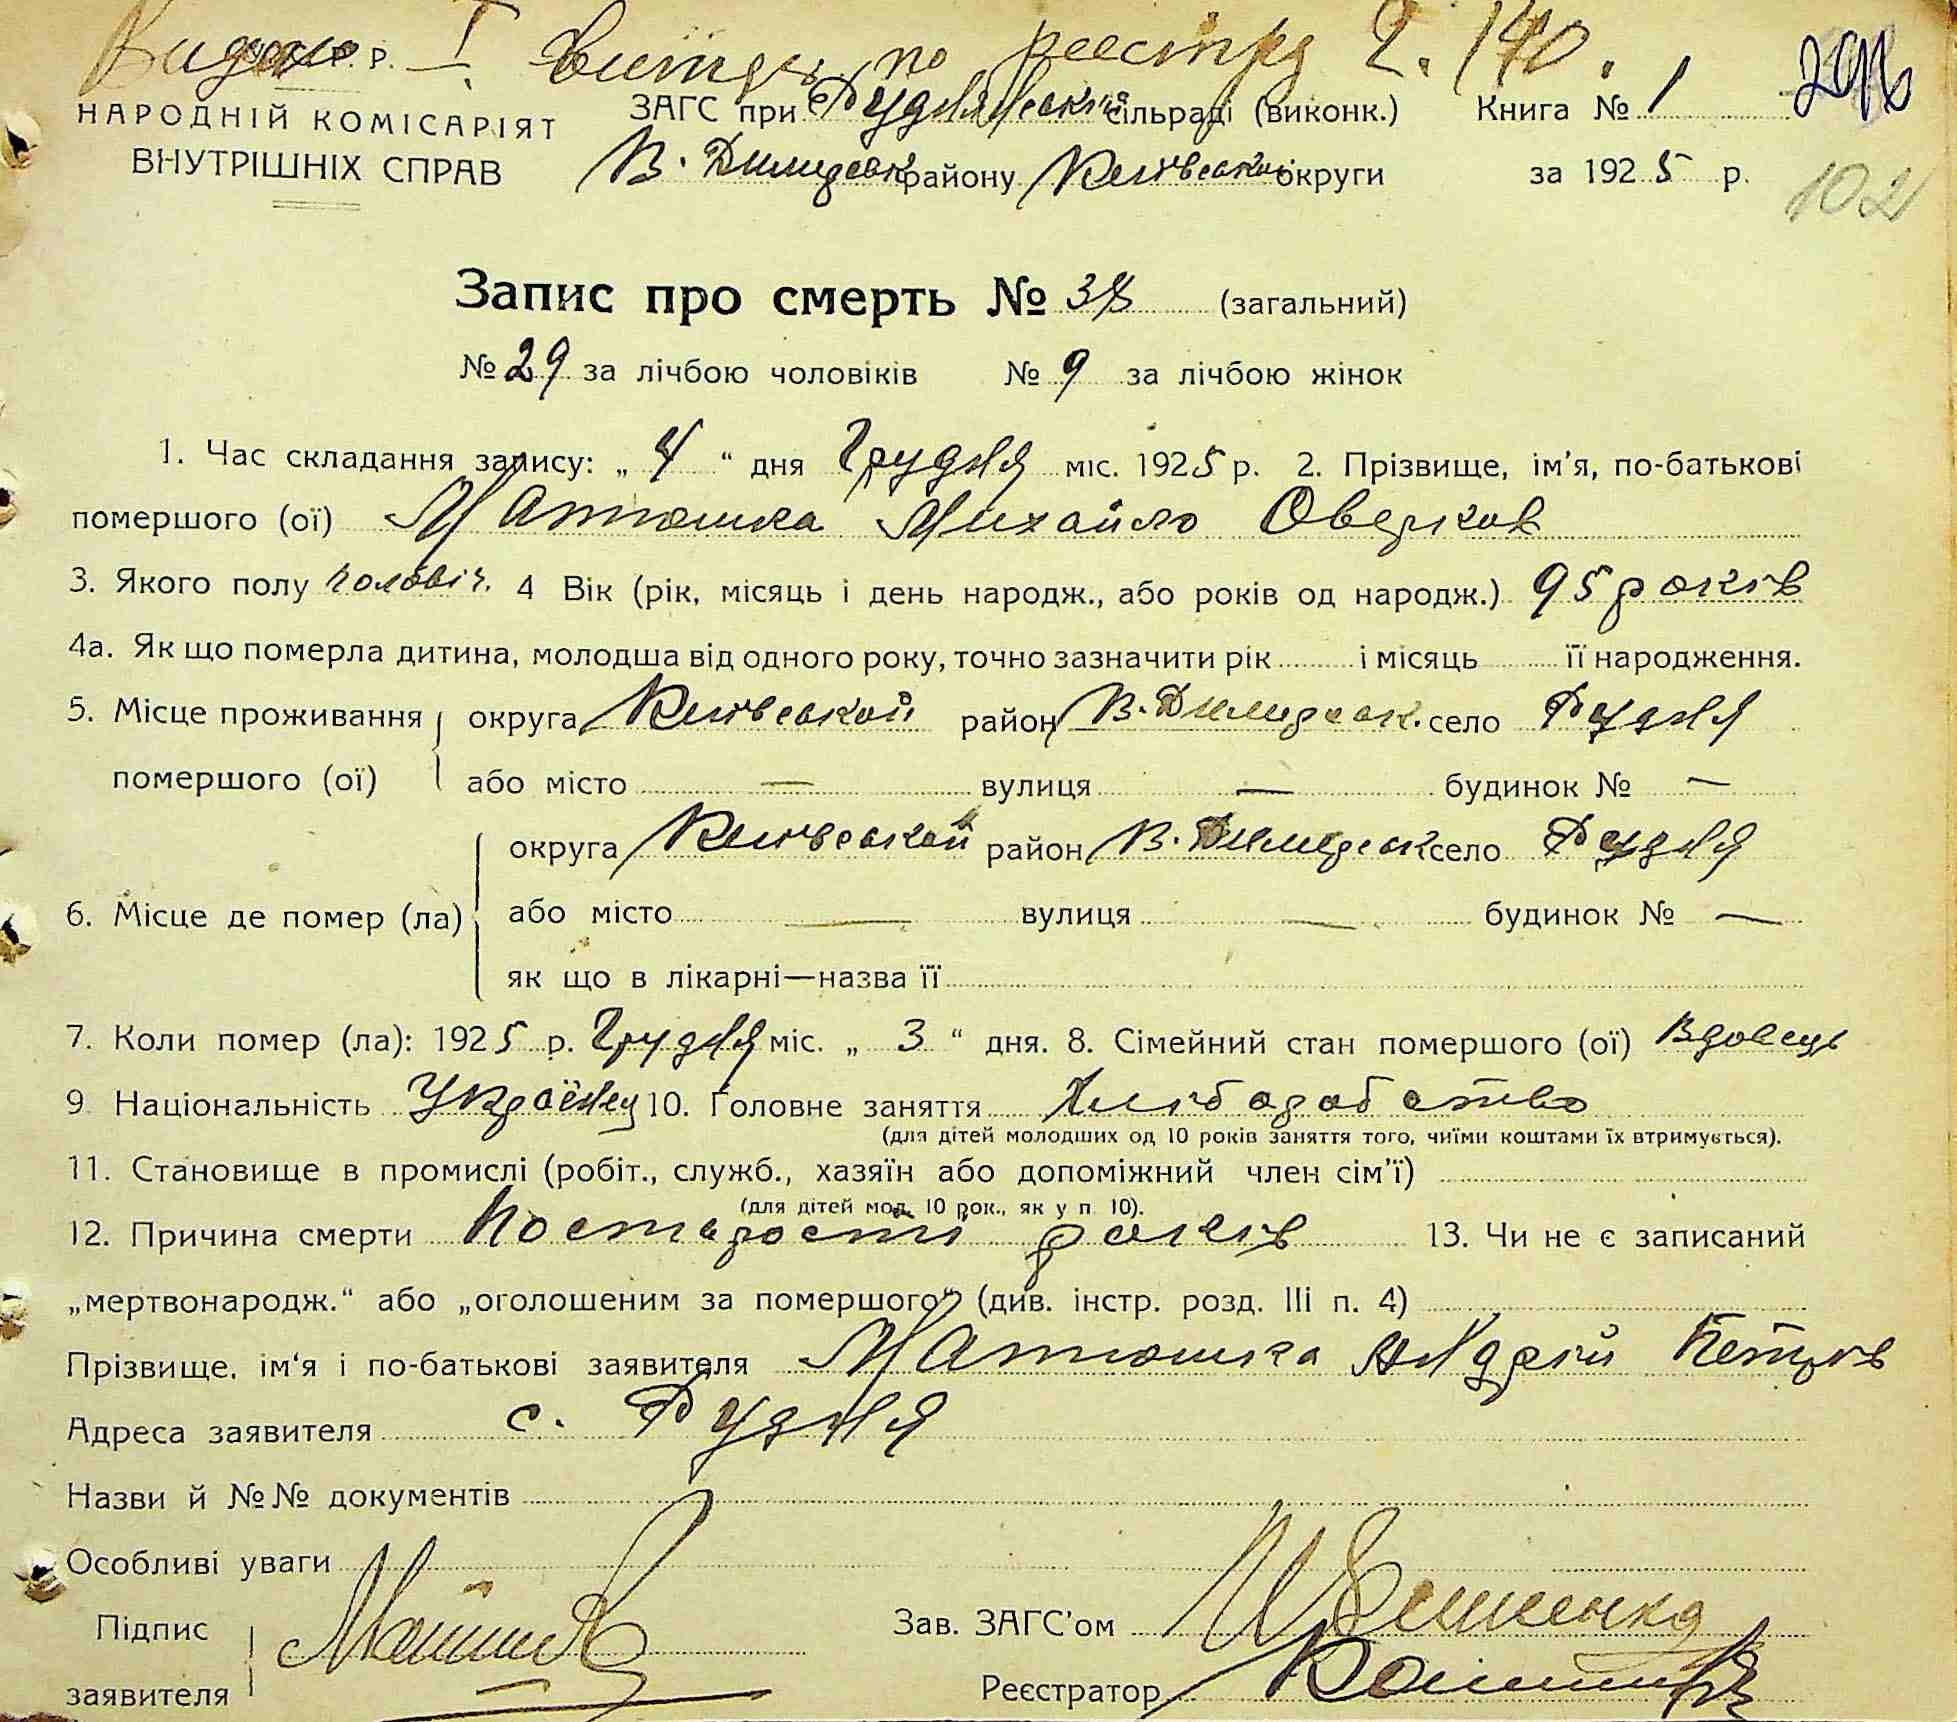 Видано І витяг по реєстру 2. 140.
Р. Р.
НАРОДНІЙ КОМІСАРІЯТ
ВНУТРІШНІХ СПРАВ
ЗАГС при Руднянській сільраді (виконк.) Книга № 1
В. Димерськ району Київської округи за 1925 р.
102
Запис про смерть № 38 (загальний)
№ 29 за лічбою чоловіків № 9 за лічбою жінок
1. Час складання запису: „ 4 “ дня Грудня міс. 1925 р. 2. Прізвище, ім'я, по-батькові
помершого (ої) Матюшка Михайло Оверков
3. Якого полу чоловіч. 4 Вік (рік, місяць і день народж., або років од народж.) 95 років
4а. Як що померла дитина, молодша від одного року, точно зазначити рік і місяць її народження.
5. Місце проживання округа Київської район В. Димерськ. село Рудня
помершого (ої) або місто — вулиця — будинок № —
округа Київської район В. Димерськ село Рудня
6. Місце де помер (ла) або місто — вулиця — будинок № —
як що в лікарні—назва її
7. Коли помер (ла): 1925 р. Грудня міс. „ 3 “ дня. 8. Сімейний стан помершого (ої) Вдовець
9. Національність Україинец 10. Головне заняття Хліборобство
(для дітей молодших од 10 років заняття того, чиїми коштами їх втримується).
11. Становище в промислі (робіт., служб., хазяїн або допоміжний член сім'ї)
(для дітей мол. 10 рок., як у п. 10).
12. Причина смерти По старости років 13. Чи не є записаний
„мертвонародж.“ або „оголошеним за помершого“ (див. інстр. розд. III п. 4)
Прізвище, ім'я і по-батькові заявителя Матюшка Андрій Петров
Адреса заявителя с. Рудня
Назви й №№ документів
Особливі уваги
Підпис
заявителя
Зав. ЗАГС'ом
Реєстратор